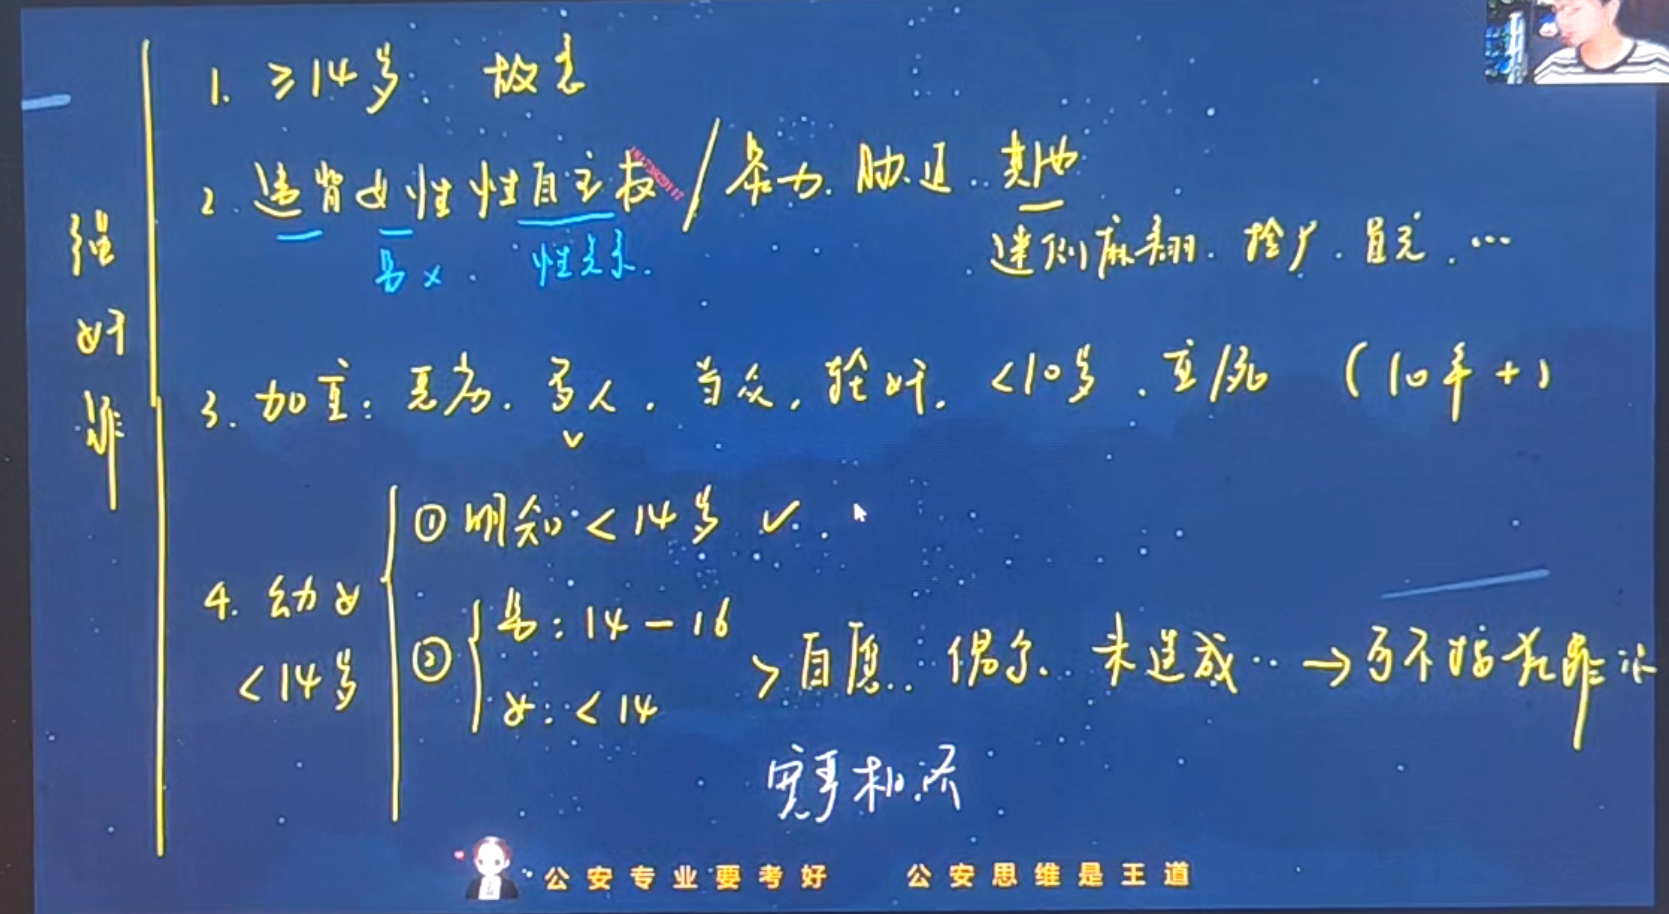 强奸罪
1. ≥14岁. 故意
2. 违背女性性自主权 / 暴力. 胁迫. 其他
男× . 性关系.
迷剂麻翻. 冒充. …
3. 加重: 恶劣. 多人. 当众. 轮奸. <10岁. 重/死 (10年+)
4. 幼女 <14岁
① 明知<14岁 ✓.
② 男: 14-16
女: <14
> 自愿. 偶尔. 未造成.. → 可不按犯罪论
宽严相济
公安专业要考好 公安思维是王道